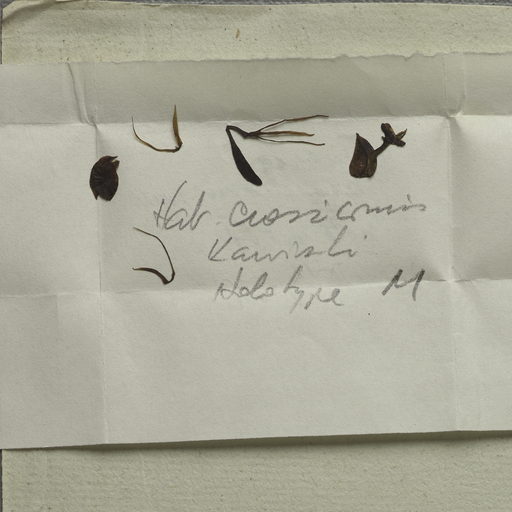 Hab. crassicornis
Karwinski
Holotype M